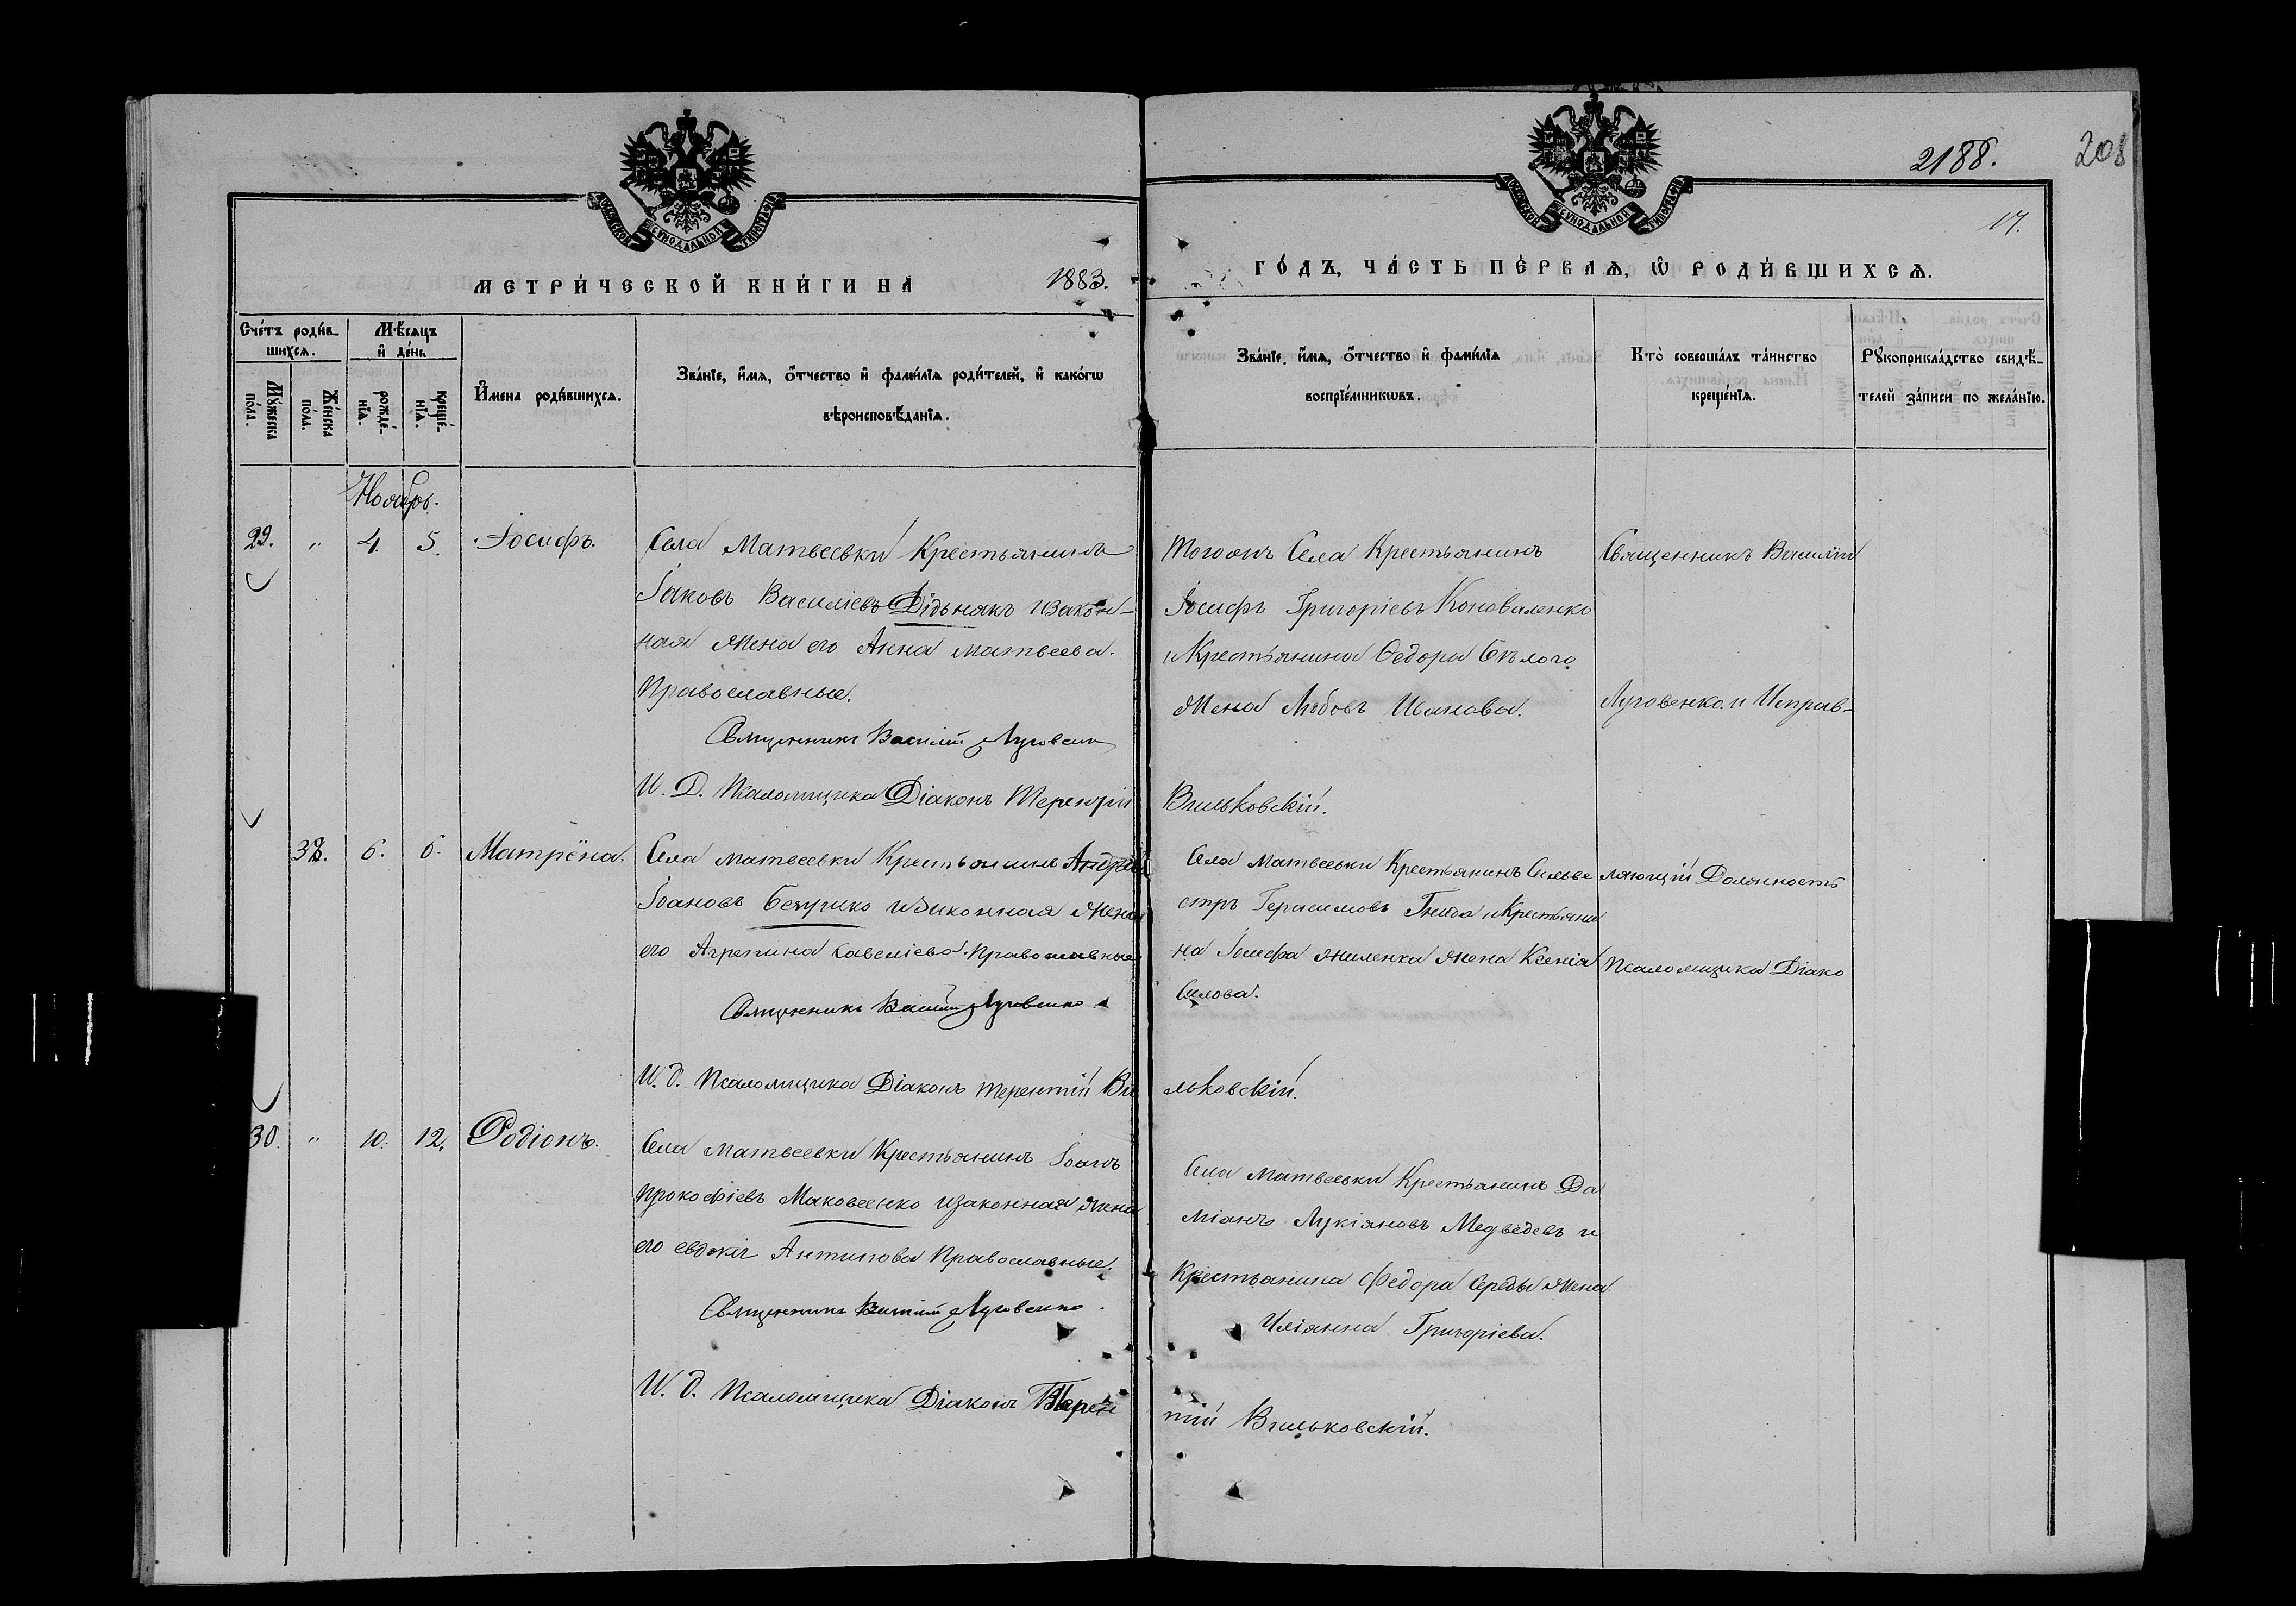 2188.
208
17.
МЕТРИ́ЧЕСКОЙ КНИ́ГИ НА 1883.
ГО́ДЪ, ЧА́СТЬ ПЕ́РВАѦ, Ѽ РОДИ́ВШИХСѦ.
Сче́тъ роди́в-
шихсѧ.
Мꙋ́жеска
по́ла.
Же́нска
по́ла.
Мѣ́сѧцъ
и҆ де́нь
рожде́-
нїѧ.
креще́-
нїѧ.
И҆́мена роди́вшихсѧ.
Зва́нїе, и҆́мѧ, ѻ҆́тчество и҆ фами́лїѧ роди́телей, и҆ како́гѡ
вѣроисповѣ́данїѧ.
Зва́нїе, и҆́мѧ, ѻ҆́тчество и҆ фами́лїѧ
воспрїе́мникѡвъ.
Кто̀ соверша́лъ та́инство
креще́нїѧ.
Рꙋкоприкла́дство свидѣ́-
телей за́писи по жела́нїю.
Ноябрь.
29. " 4. 5. Іосифъ.
Села Матвеевки Крестьянинъ
Іаковъ Василіевъ Дідьнякъ и закон-
ная жена его Анна Матвеева.
Православные.
Священникъ Василій Луговенко
И. Д. Псаломщика Діаконъ Терентій
Вильковскій.
Тогожъ Села Крестьянинъ
Іосифъ Григоріевъ Коноваленко
и Крестьянина Ѳедора Бѣлого
жена Любовь Иванова.
Священникъ Василій
Луговенко и Исправ-
38. 6. 6. Матрёна.
Села Матвеевки Крестьянинъ Андрей
Іоановъ и законная жена
его Агрепина Савеліева. Православные
Священникъ Василій Луговенко
И. д. Псаломщика Діаконъ Терентій Ви
льковскій.
Села Матвеевки Крестьянинъ Сильве
стръ Герасимовъ Гнида и Крестьяни
на Іосифа жена Ксенія
Силова.
ляющій Должность
Псаломщика Діако
30. " 10. 12. Родіонъ.
Села Матвеевки Крестьянинъ Іоанъ
Прокофіевъ Маковеенко и законная жена
его Евдокія Антипова Православные.
Священникъ Василій Луговенко.
И. д. Псаломщика Діаконъ Терен
тій Вильковскій.
Села Матвеевки Крестьянинъ Да
міанъ Лукіяновъ Медведевъ и
Крестьянина Федора Середы жена
Уліанна Григоріева.